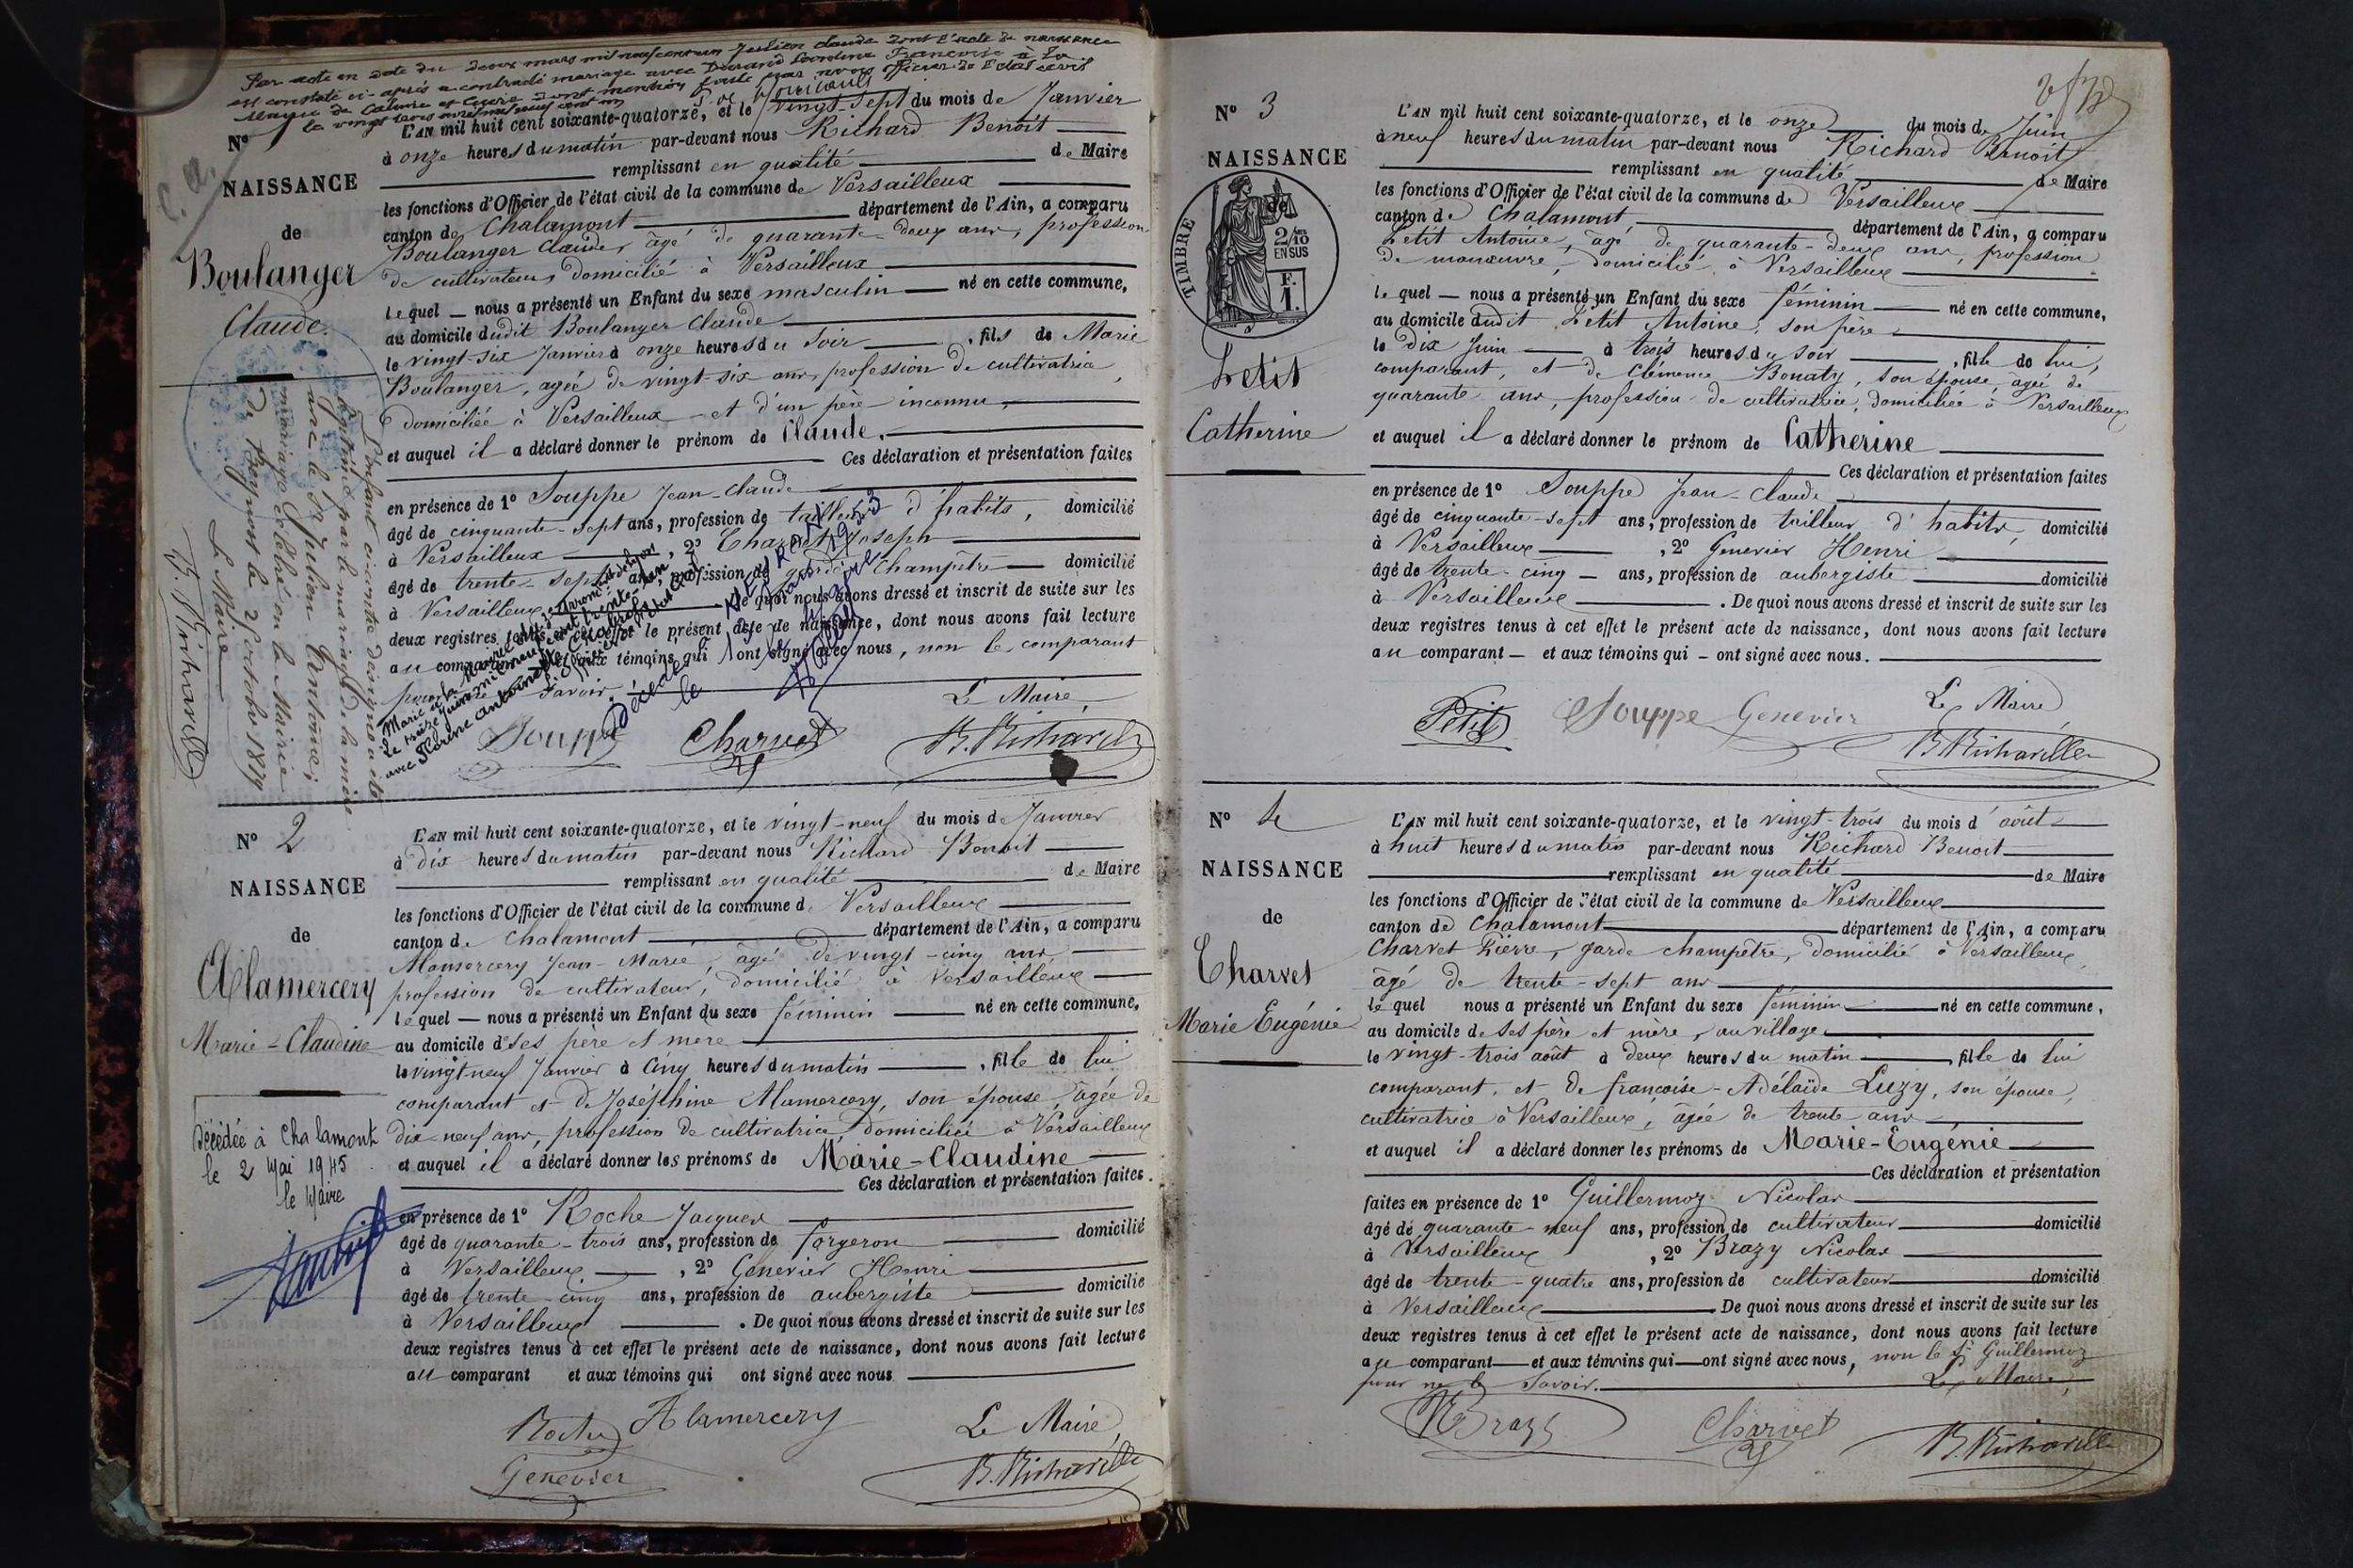 Par acte en date du deux mars mil neuf cent un Julien Claude dont l'acte de naissance
est constaté ci-après a contracté mariage avec Durand Françoise à la
Mairie de Caluire et Cuire dont mention faite par nous officier de l'état civil
le vingt trois mars mil neuf cent un
N°
NAISSANCE
de
Boulanger
Claude.
L'AN mil huit cent soixante-quatorze, et le vingt-sept du mois de Janvier
à onze heures du matin par-devant nous Richard Benoit
remplissant en qualité de Maire
les fonctions d'Officier de l'état civil de la commune de Versailleux
canton de Chalamont département de l'Ain, a comparu
Boulanger Claude, âgé de quarante-deux ans, profession
de cultivateur, domicilié à Versailleux
lequel nous a présenté un Enfant du sexe masculin né en cette commune,
au domicile dudit Boulanger Claude
le vingt-six Janvier à onze heures du soir, fils de Marie
Boulanger, agée de vingt-six ans, profession de cultivatrice,
domiciliée à Versailleux et d'un père inconnu,
et auquel il a déclaré donner le prénom de Claude.
Ces déclaration et présentation faites
en présence de 1° Souppe Jean-Claude
âgé de cinquante-sept ans, profession de tailleur d'habits, domicilié
à Versailleux, 2° Charvet Joseph
âgé de trente-sept ans, profession de garde champêtre domicilié
à Versailleux. De quoi nous avons dressé et inscrit de suite sur les
deux registres tenus à cet effet le présent acte de naissance, dont nous avons fait lecture
au comparant et aux témoins qui ont signé avec nous, non le comparant
pour ne savoir.
Le Maire,
Souppe Charvet B. Richard
L'enfant ci-contre désigné a été
légitimé par le mariage de la mère
avec le Sr Julien Antoine,
mariage célébré en la Mairie
de le 2 octobre 1874
Le Maire
B. Richard
Décédé à
le 13 mars 1953
le Maire
N° 2
NAISSANCE
de
Alamercery
Marie-Claudine
Décédée à Chalamont
le 2 Mai 1945
le Maire
L'AN mil huit cent soixante-quatorze, et le vingt-neuf du mois de Janvier
à dix heures du matin par-devant nous Richard Benoit
remplissant en qualité de Maire
les fonctions d'Officier de l'état civil de la commune de Versailleux
canton de Chalamont département de l'Ain, a comparu
Alamercery Jean-Marie, âgé de vingt-cinq ans,
profession de cultivateur, domicilié à Versailleux
lequel nous a présenté un Enfant du sexe féminin né en cette commune,
au domicile de ses père et mère
le vingt-neuf Janvier à cinq heures du matin, fille de lui
comparant et de Joséphine Alamercery, son épouse, âgée de
dix-neuf ans, profession de cultivatrice, domiciliée à Versailleux
et auquel il a déclaré donner les prénoms de Marie-Claudine
Ces déclaration et présentation faites.
en présence de 1° Roche Jacques
âgé de quarante-trois ans, profession de forgeron domicilié
à Versailleux, 2° Genevier Henri
âgé de trente-cinq ans, profession de aubergiste domicilié
à Versailleux. De quoi nous avons dressé et inscrit de suite sur les
deux registres tenus à cet effet le présent acte de naissance, dont nous avons fait lecture
au comparant et aux témoins qui ont signé avec nous
Roche Alamercery Le Maire,
Genevier B. Richard
N° 3
NAISSANCE
de
TIMBRE
2/10
EN SUS
F.
1.
Petit
Catherine
L'AN mil huit cent soixante-quatorze, et le onze du mois de Juin
à neuf heures du matin par-devant nous Richard Benoit
remplissant en qualité de Maire
les fonctions d'Officier de l'état civil de la commune de Versailleux
canton de Chalamont département de l'Ain, a comparu
Petit Antoine, âgé de quarante-deux ans, profession
de manœuvre, domicilié à Versailleux
lequel nous a présenté un Enfant du sexe féminin né en cette commune,
au domicile dudit Petit Antoine, son père
le dix Juin à trois heures du soir, fille de lui,
comparant, et de Clémence Bonaty, son épouse, âgée de
quarante ans, profession de cultivatrice, domiciliée à Versailleux
et auquel il a déclaré donner le prénom de Catherine
Ces déclaration et présentation faites
en présence de 1° Souppe Jean-Claude
âgé de cinquante-sept ans, profession de tailleur d'habits, domicilié
à Versailleux, 2° Genevier Henri
âgé de trente-cinq ans, profession de aubergiste domicilié
à Versailleux. De quoi nous avons dressé et inscrit de suite sur les
deux registres tenus à cet effet le présent acte de naissance, dont nous avons fait lecture
au comparant et aux témoins qui ont signé avec nous.
Le Maire
Petit Souppe Genevier
B. Richard
N° 4
NAISSANCE
de
Charvet
Marie Eugénie
L'AN mil huit cent soixante-quatorze, et le vingt-trois du mois d'août
à huit heures du matin par-devant nous Richard Benoit
remplissant en qualité de Maire
les fonctions d'Officier de l'état civil de la commune de Versailleux
canton de Chalamont département de l'Ain, a comparu
Charvet Pierre, garde champêtre, domicilié à Versailleux,
âgé de trente-sept ans
lequel nous a présenté un Enfant du sexe féminin né en cette commune,
au domicile de ses père et mère, au village
le vingt-trois août à deux heures du matin, fille de lui
comparant, et de françoise-Adélaïde Luzy, son épouse,
cultivatrice à Versailleux, âgée de trente ans
et auquel il a déclaré donner les prénoms de Marie-Eugénie
Ces déclaration et présentation
faites en présence de 1° Guillermoz Nicolas
âgé de quarante-neuf ans, profession de cultivateur domicilié
à Versailleux, 2° Brazy Nicolas
âgé de trente-quatre ans, profession de cultivateur domicilié
à Versailleux. De quoi nous avons dressé et inscrit de suite sur les
deux registres tenus à cet effet le présent acte de naissance, dont nous avons fait lecture
au comparant et aux témoins qui ont signé avec nous, non le Sr Guillermoz
pour ne le savoir. Le Maire,
N Brazy Charvet B. Richard